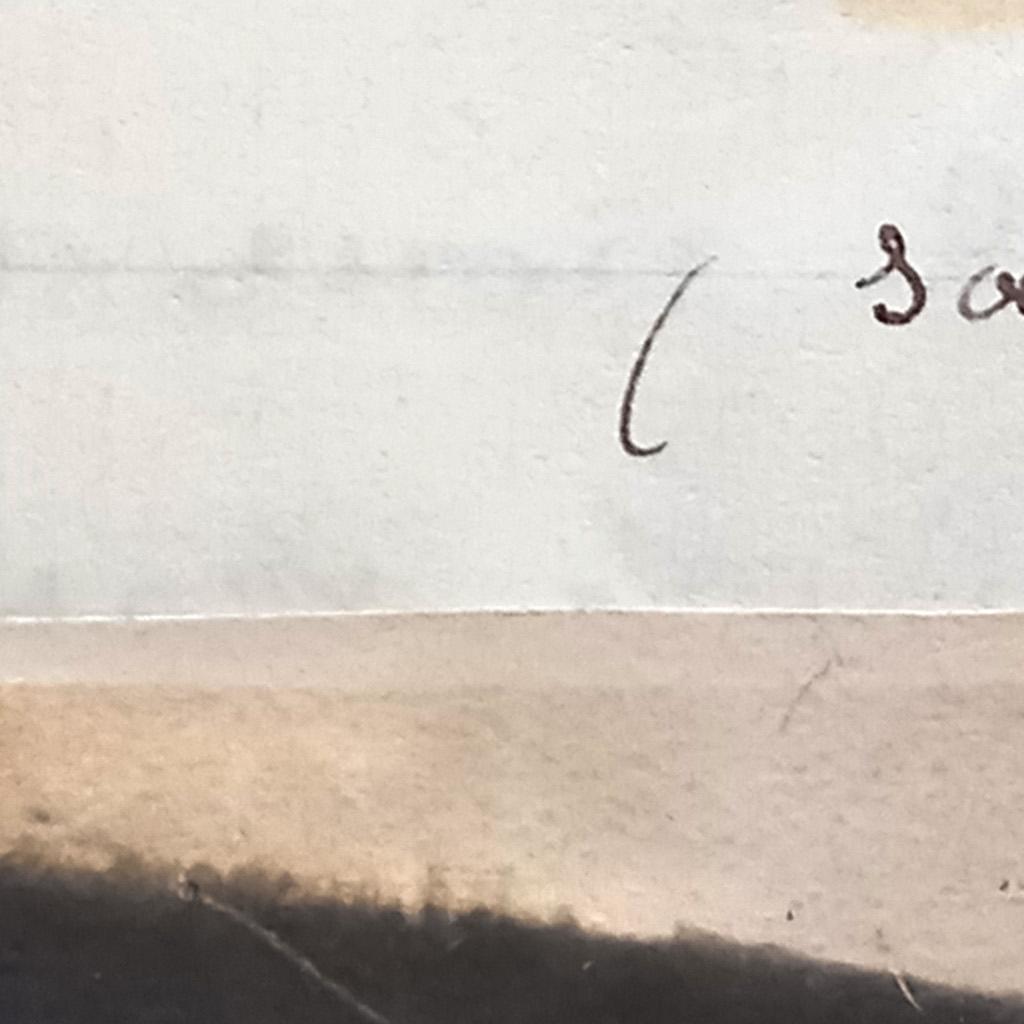 ( Sa